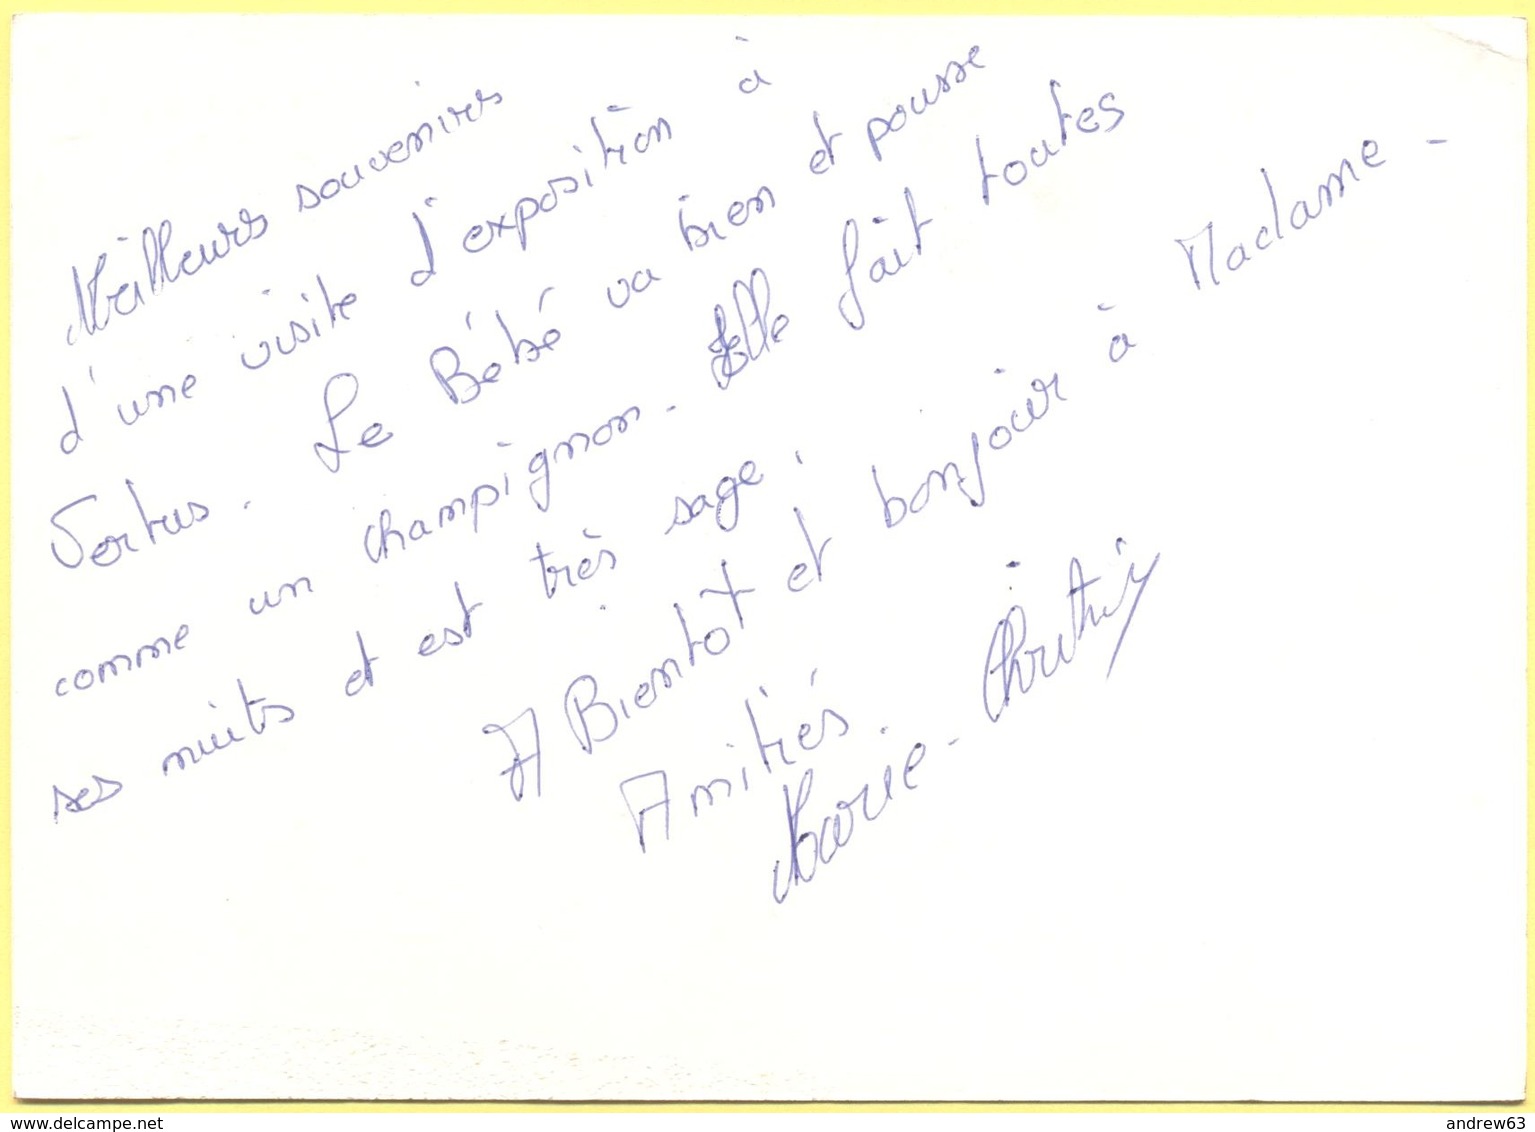 Meilleurs souvenirs
d'une visite d'exposition à
Vertus. Le Bébé va bien et pousse
comme un champignon. Elle fait toutes
ses nuits et est très sage.
A Bientôt et bonjour à Madame -
Amitiés.
Marie-
www.delcampe.net
andrew63